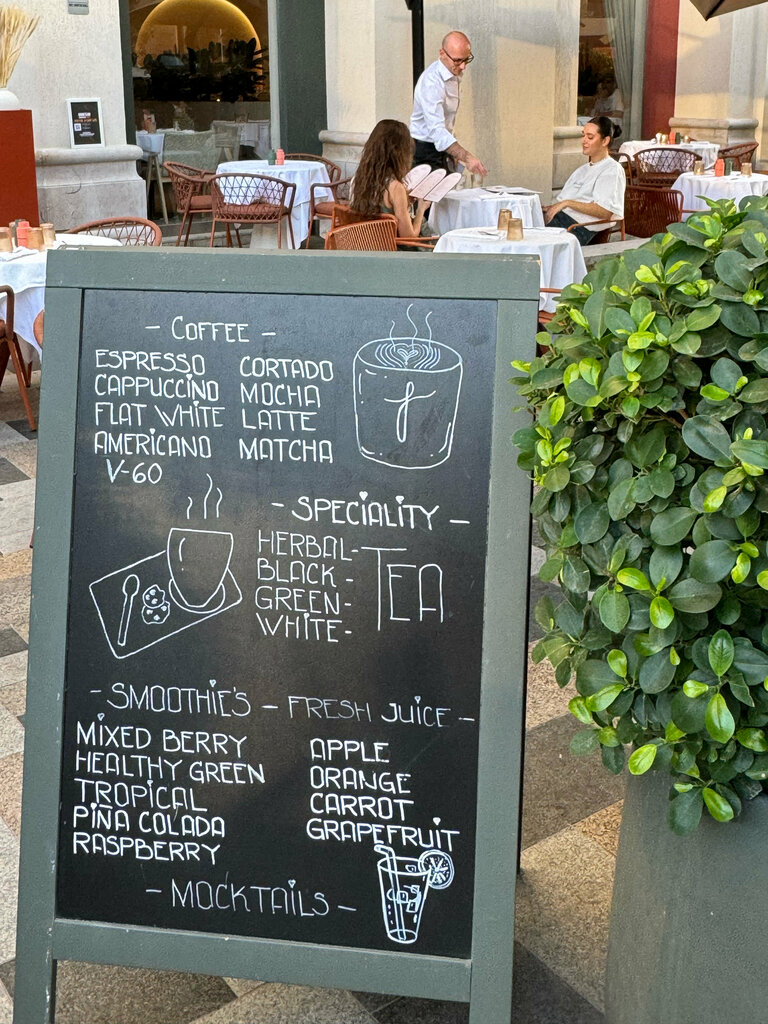 - COFFEE -
ESPRESSO
CAPPUCCINO
FLAT WHITE
AMERICANO
V-60
CORTADO
MOCHA
LATTE
MATCHA
- SPECIALITY -
HERBAL-
BLACK -
GREEN-
WHITE-
TEA
- SMOOTHIE'S -
MIXED BERRY
HEALTHY GREEN
TROPICAL
PIÑA COLADA
RASPBERRY
FRESH JUICE -
APPLE
ORANGE
CARROT
GRAPEFRUIT
- MOCKTAILS -